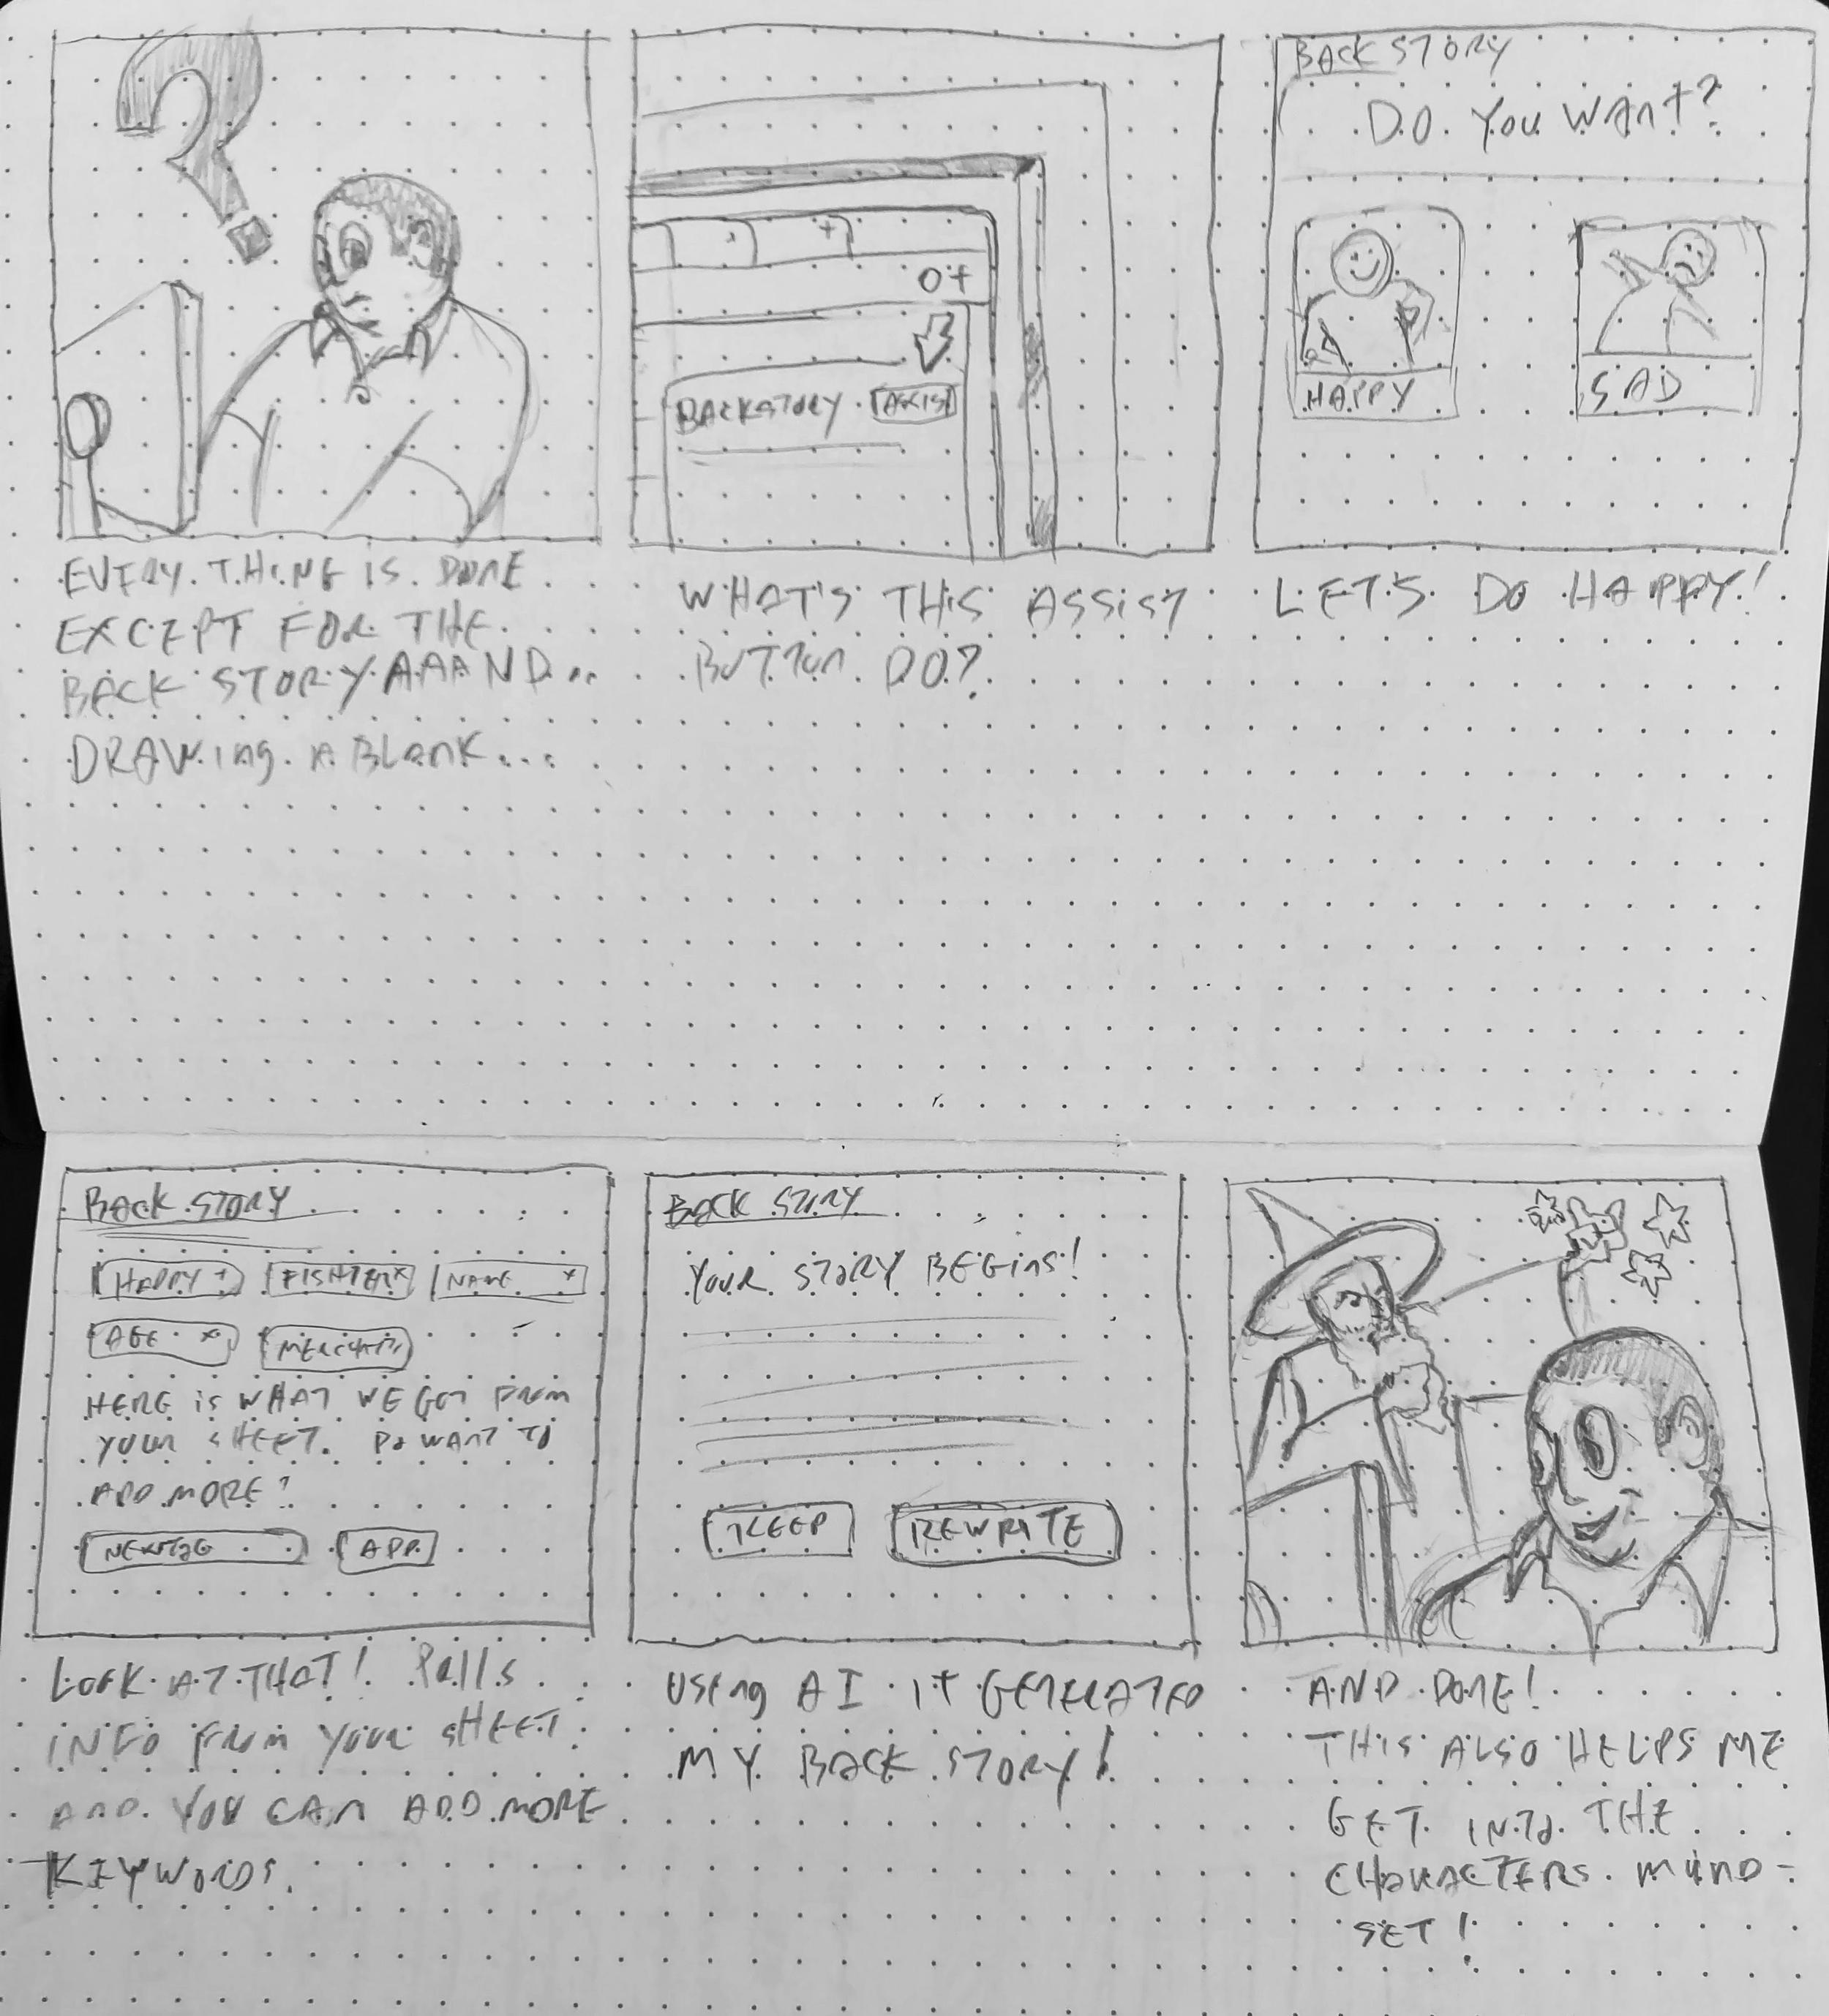 BACKSTORY ASSIST
BACK STORY
DO YOU WANT?
HAPPY
SAD
EVERY THING IS DONE
EXCEPT FOR THE
BACK STORY AAAND...
DRAWing A BLANK...
WHAT'S THIS ASSIST
BUTTON DO?
LET'S DO HAPPY!
BACK STORY
HAPPY + FIGHTER x NAME x
AGE x
HERE IS WHAT WE GOT FROM
YOUR SHEET. DO WANT TO
ADD MORE?
BACK STORY
YOUR STORY BEGINS!
KEEP REWRITE
LOOK AT THAT! Pulls
INFO FROM YOUR SHEET
AND YOU CAN ADD MORE
KEYWORDS.
USING AI IT GENERATED
MY BACK STORY!
AND DONE!
THIS ALSO HELPS ME
GET INTO THE
CHARACTERS MIND-
SET!